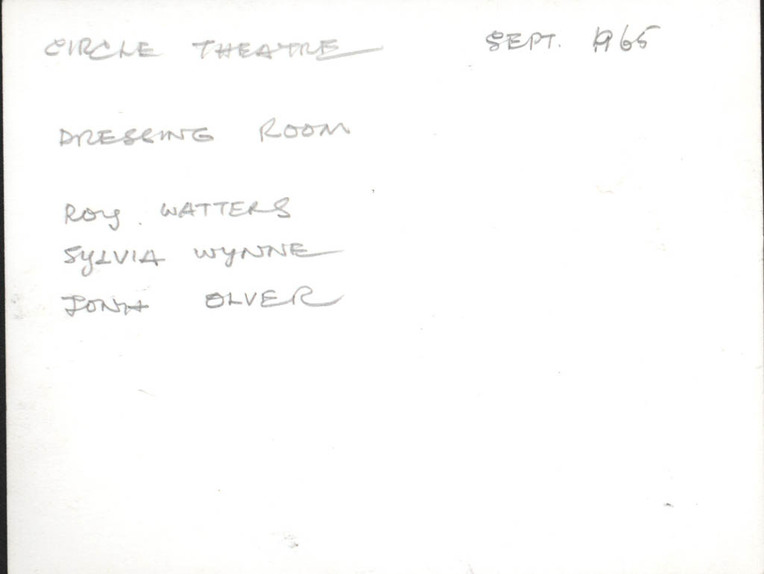 CIRCLE THEATRE SEPT. 1965
DRESSING ROOM
ROY. WATTERS
SYLVIA WYNNE
OLVER